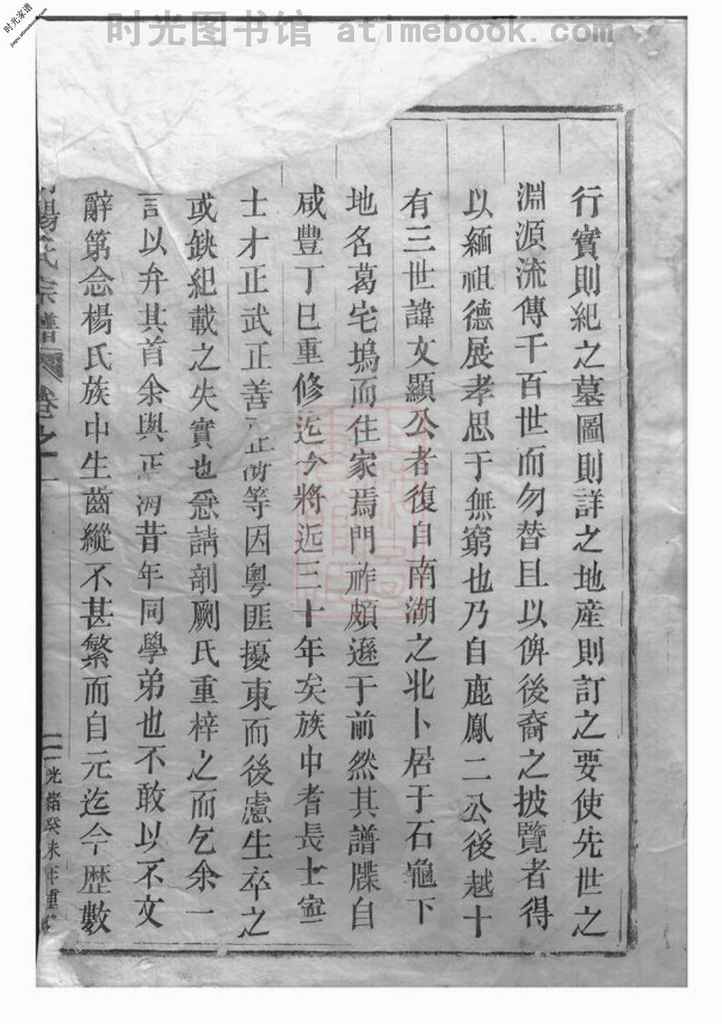 时光图书馆 atimebook.com
时光家谱
行實則紀之墓圖則詳之地産則訂之要使先世之
淵源流傳千百世而勿替且以俾後裔之披覽者得
以緬祖德展孝思于無窮也乃自鹿鳳二公後越十
有三世諱文顯公者復自南湖之北卜居于石龜下
地名葛宅塢而住家焉門祚頗遜于前然其譜牒自
咸豐丁巳重修迄今將近三十年矣族中耆長士寧
士才正武正善正等因粵匪擾東而後慮生卒之
或缺紀載之失實也愆請剞劂氏重梓之而乞余一
言以弁其首余與正昔年同學弟也不敢以不文
辭第念楊氏族中生齒縱不甚繁而自元迄今歷數
楊氏宗譜 卷之一
光緒癸未年重